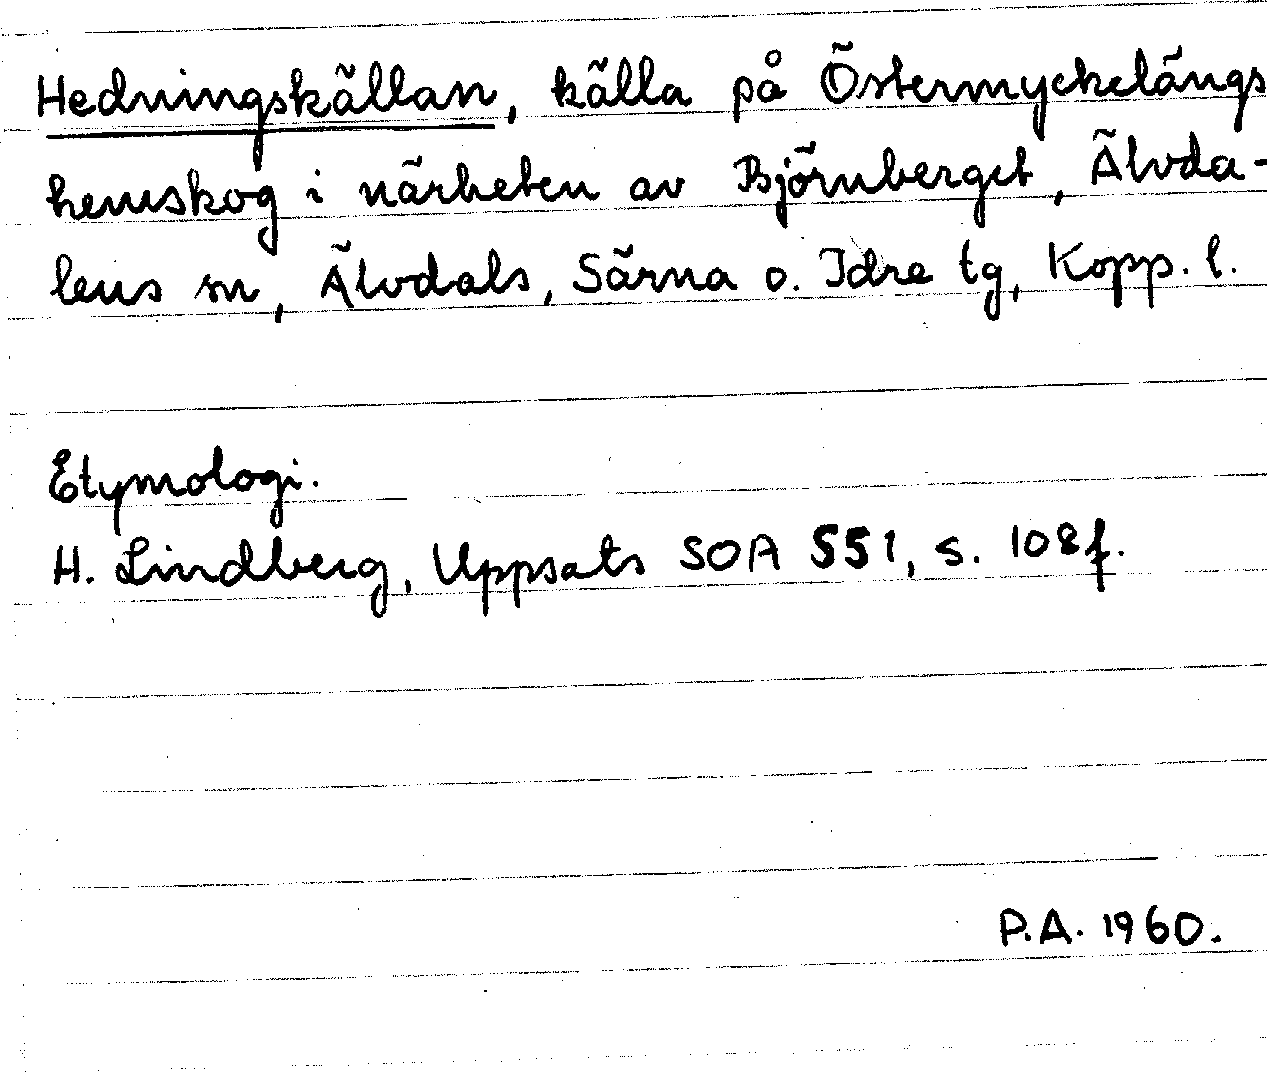 Hedningskällan, källa på Östermyckelängs
hemskog i närheten av Björnberget, Älvda-
lens sn, Älvdals, Särna o. Idre tg, Kopp. l.
Etymologi.
H. Lindberg, Uppsats SOA 551, s. 108f.
P.A. 1960.